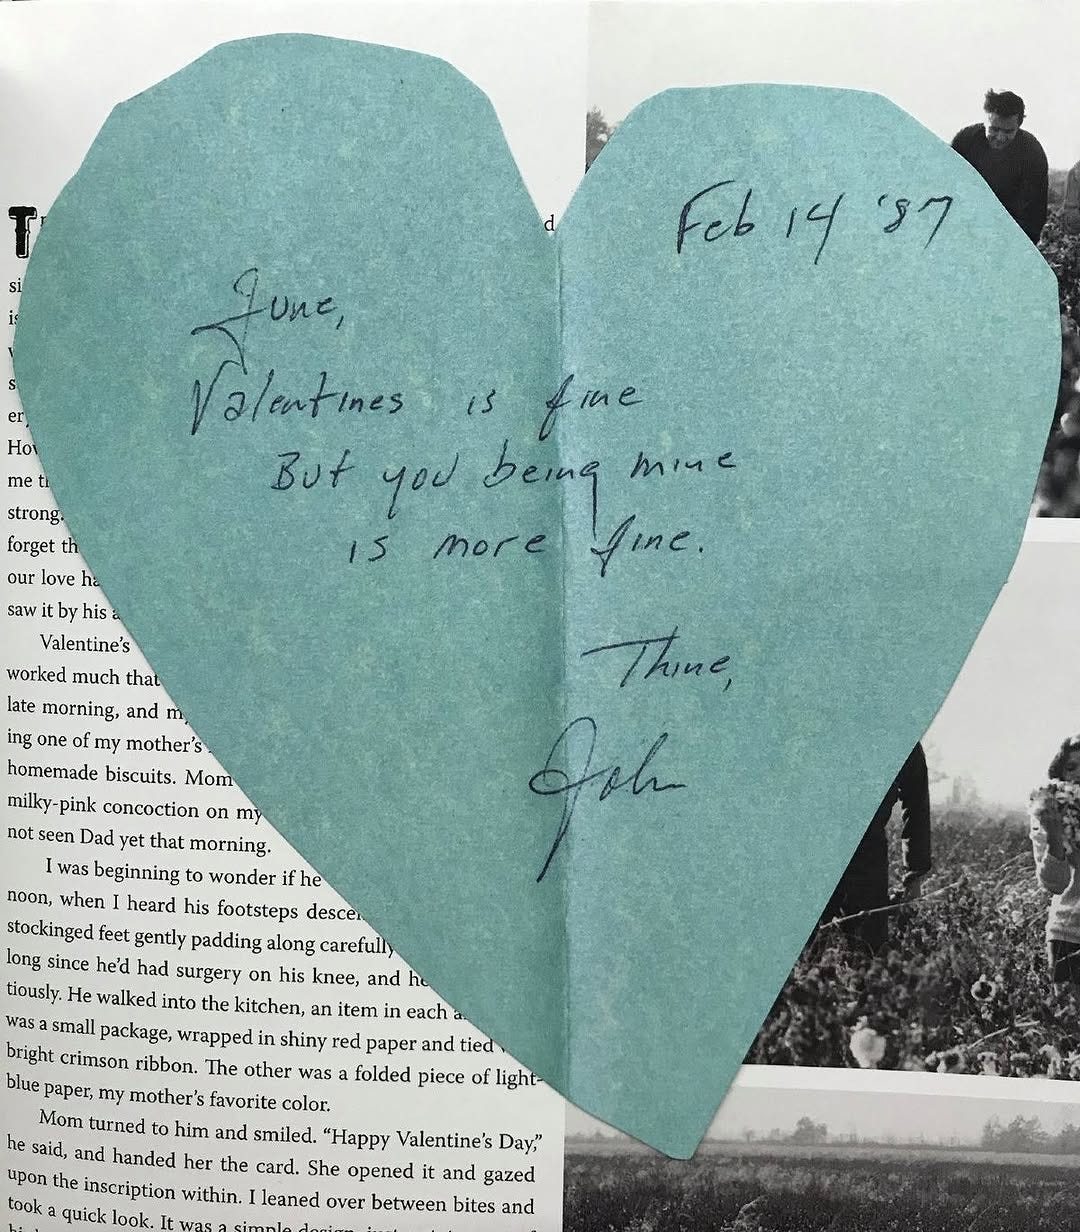 Feb 14 '87
June,
Valentines is fine
But you being mine
is more fine.
Thine,
John
T
d
si
is
s
er
How
me
strong.
forget th
our love ha
saw it by his
Valentine's
worked much that
late morning, and my
ing one of my mother's
homemade biscuits. Mom
milky-pink concoction on my
not seen Dad yet that morning.
I was beginning to wonder if he
noon, when I heard his footsteps descen
stockinged feet gently padding along carefully
long since he'd had surgery on his knee, and he
tiously. He walked into the kitchen, an item in each
was a small package, wrapped in shiny red paper and tied
bright crimson ribbon. The other was a folded piece of light-
blue paper, my mother's favorite color.
Mom turned to him and smiled. “Happy Valentine's Day,”
he said, and handed her the card. She opened it and gazed
upon the inscription within. I leaned over between bites and
took a quick look. It was a simple design, just